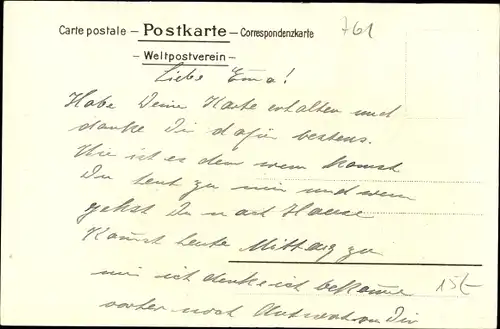 Carte postale – Postkarte – Correspondenzkarte
761
– Weltpostverein –
Liebe Ema!
Habe Deine Karte erhalten und
danke Dir dafür bestens.
Wie ist es den wen komst
Du heut zu mir und wen
gehst Du nach Hause
Komst heute Mittag zu
mir ich denke ich bekome
vorher noch Antwort von Dir
15